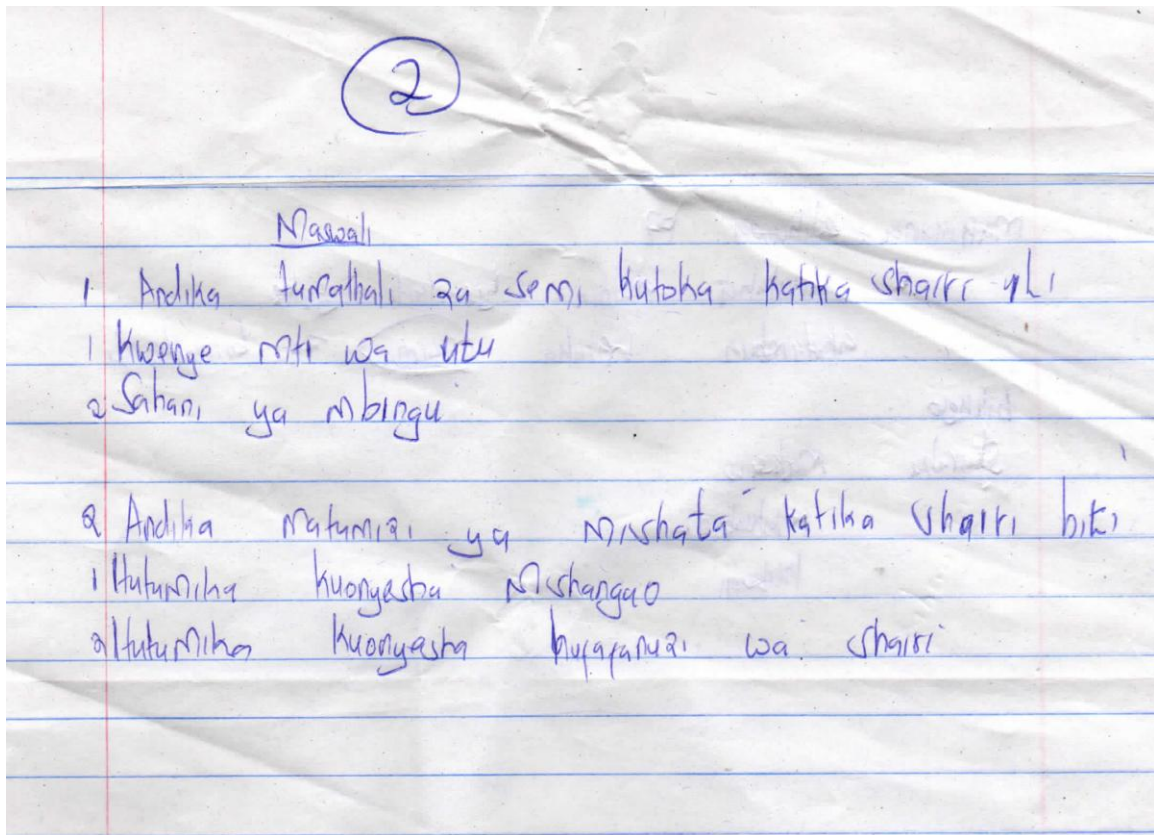 2
Maswali
1 Andika tumathali za semi kutoka katika shairi hili
1 Kwenye mti wa utu
2 Sahani ya mbingu
2 Andika matumizi ya mishata katika shairi hiki
1 Hutumika kuonyesha Mshangao
2 Hutumika kuonyesha wa shairi